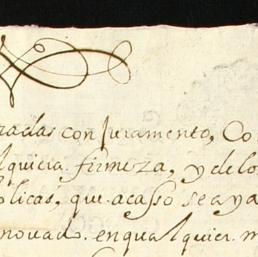 radas con Juramento, Co
lquiera firmeza, y de lo
olicas, que acasso se aya
nouad. en qualquier m